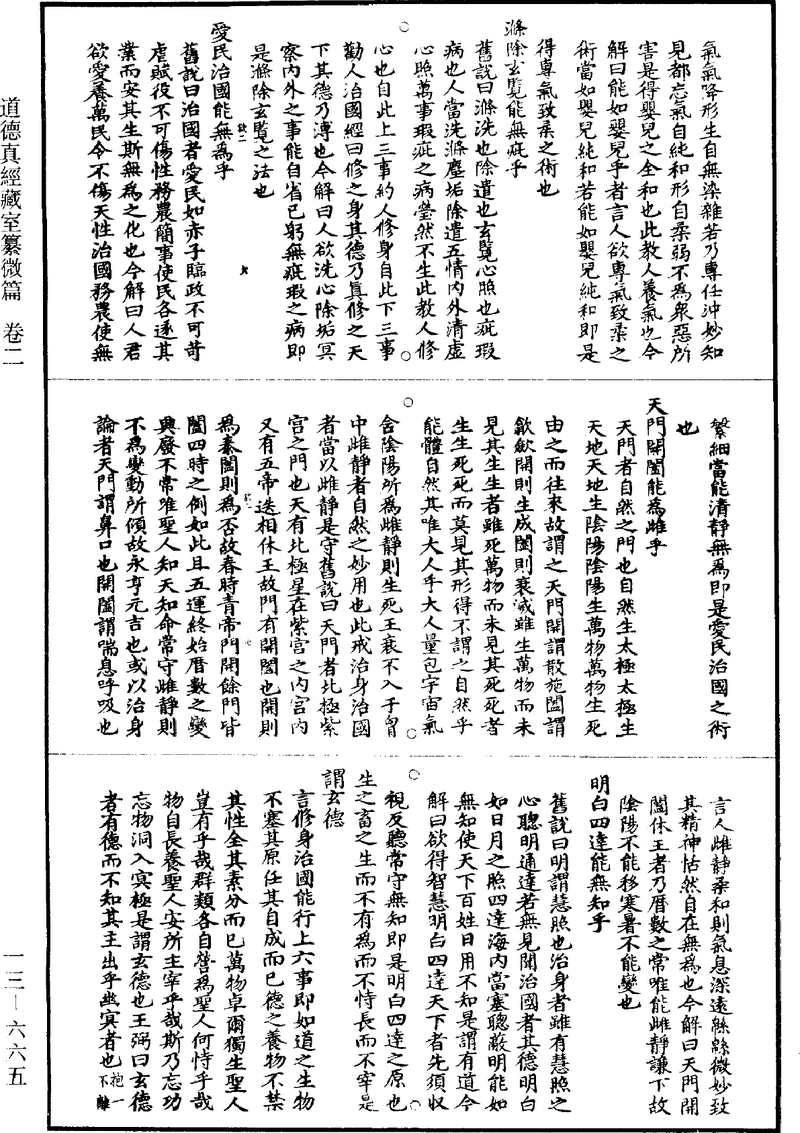 氣氣降形生自無染雜若乃專任沖妙知
見都忘氣自純和形自柔弱不為衆惡所
害是得嬰兒之全和也此教人養氣也今
解曰能如嬰兒乎者言人欲專氣致柔之
術當如嬰兒純和若能如嬰兒純和即是
得專氣致柔之術也
滌除玄覽能無疵乎
舊說曰滌洗也除遣也玄覽心照也疵瑕
病也人當洗滌塵垢除遣五情內外清虛
心照萬事瑕疵之病瑩然不生此教人修
心也自此上三事約人修身自此下三事
勸人治國經曰修之身其德乃真修之天
下其德乃溥也今解曰人欲洗心除垢冥
察內外之事能自省已躬無疵瑕之病即
是滌除玄覽之法也
愛民治國能無為乎
舊說曰治國者愛民如赤子臨政不可苛
虐賦役不可傷性務農簡事使民各遂其
業而安其生斯無為之化也今解曰人君
欲愛養萬民令不傷天性治國務農使無
繁細當能清靜無為即是愛民治國之術
也
天門開闔能為雌乎
天門者自然之門也自然生太極太極生
天地天地生陰陽陰陽生萬物萬物生死
由之而往來故謂之天門開謂散施闔謂
歛歛開則生成闔則衰滅雖生萬物而未
見其生生者雖死萬物而未見其死死者
生生死死而莫見其形得不謂之自然乎
能體自然其唯大人乎大人量包宇宙氣
含陰陽所為雌靜則生死王衰不入于胷
中雌靜者自然之妙用也此戒治身治國
者當以雌靜是守舊說曰天門者北極紫
宫之門也天有北極星在紫宫之內宫內
又有五帝迭相休王故門有開闔也開則
為泰闔則為否故春時青帝門開餘門皆
闔四時之例如此且五運終始曆數之變
興廢不常唯聖人知天知命常守雌靜則
不為變動所傾故永亨元吉也或以治身
論者天門謂鼻口也開闔謂喘息呼吸也
言人雌靜柔和則氣息深遠緜緜微妙致
其精神怙然自在無為也今解曰天門開
闔休王者乃曆數之常唯能雌靜謙下故
陰陽不能移寒暑不能變也
明白四達能無知乎
舊說曰明謂慧照也治身者雖有慧照之
心聰明通達若無見聞治國者其德明白
如日月之照四達海內當塞聰蔽明能如
無知使天下百姓日用不知是謂有道今
解曰欲得智慧明白四達天下者先須收
視反聽常守無知即是明白四達之原也
生之畜之生而不有為而不恃長而不宰是
謂玄德
言修身治國能行上六事即如道之生物
不塞其原任其自成而已德之養物不禁
其性全其素分而已萬物卓爾獨生聖人
豈有乎哉群類各自營為聖人何恃乎哉
物自長養聖人安所主宰乎哉斯乃忘功
忘物洞入冥極是謂玄德也王弼曰玄德
者有德而不知其主出乎幽冥者也抱一
不離
道德真經藏室纂微篇 卷二
一三—六六五